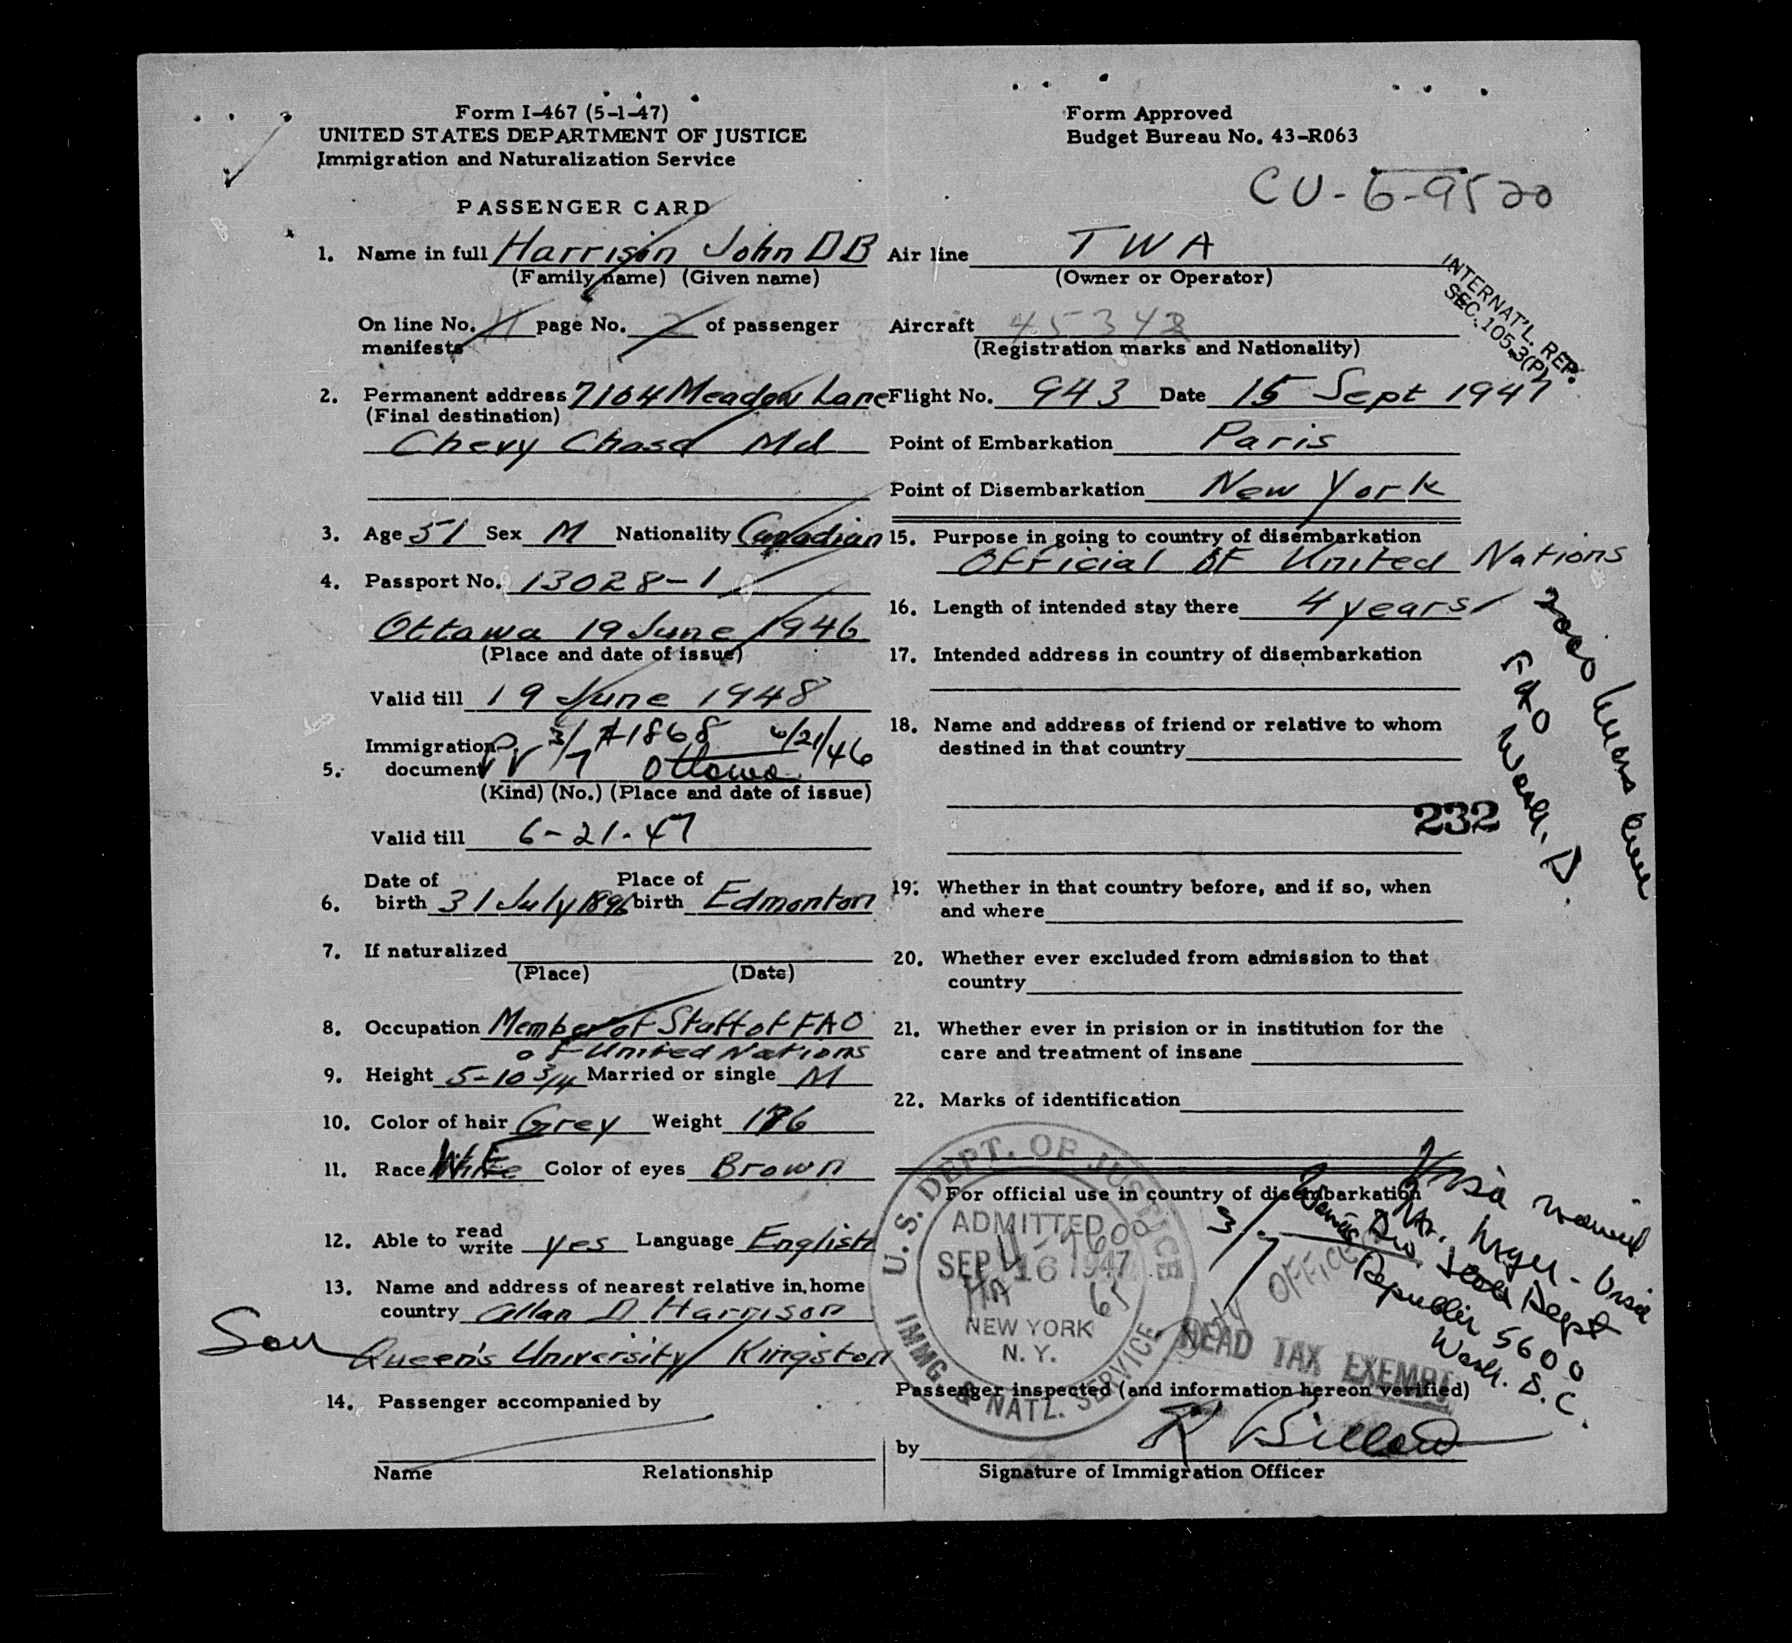 Form I-467 (5-1-47)
UNITED STATES DEPARTMENT OF JUSTICE
Immigration and Naturalization Service
PASSENGER CARD
1. Name in full Harrison John D B
(Family name) (Given name)
On line No. 11 page No. 2 of passenger
manifests
2. Permanent address 7104 Meadow Lane
(Final destination)
Chevy Chase Md
3. Age 51 Sex M Nationality Canadian
4. Passport No. 13028-1
Ottawa 19 June 1946
(Place and date of issue)
Valid till 19 June 1948
Immigration 3/ #1868 6/21/46
5. document PV 7 Ottawa
(Kind) (No.) (Place and date of issue)
Valid till 6-21-47
Date of Place of
6. birth 31 July 1896 birth Edmonton
7. If naturalized
(Place) (Date)
8. Occupation Member of Staff of FAO
of United Nations
9. Height 5-10 3/4 Married or single M
10. Color of hair Grey Weight 176
11. Race White Color of eyes Brown
12. Able to read write yes Language English
13. Name and address of nearest relative in home
country Allan D Harrison
Son Queen's University Kingston
14. Passenger accompanied by
Name Relationship
Form Approved
Budget Bureau No. 43-R063
CU-6-9520
Air line TWA
(Owner or Operator)
INTERNAT'L. REP.
SEC. 105.3(P)
Aircraft 45342
(Registration marks and Nationality)
Flight No. 943 Date 15 Sept 1947
Point of Embarkation Paris
Point of Disembarkation New York
15. Purpose in going to country of disembarkation
Official of United Nations
16. Length of intended stay there 4 years
17. Intended address in country of disembarkation
18. Name and address of friend or relative to whom
destined in that country
2000 Mass Ave
FAO
Wash. D
232
19. Whether in that country before, and if so, when
and where
20. Whether ever excluded from admission to that
country
21. Whether ever in prision or in institution for the
care and treatment of insane
22. Marks of identification
For official use in country of disembarkation
U. S. DEPT. OF JUSTICE
ADMITTED
SEP 16 1947
65
NEW YORK
N. Y.
IMMG. & NATZ. SERVICE
3/7
Visa waived
Mr. - Visa
Div. State Dept
Republic 5600
Wash. D.C.
HEAD TAX EXEMPT
Passenger inspected (and information hereon verified)
by
Signature of Immigration Officer